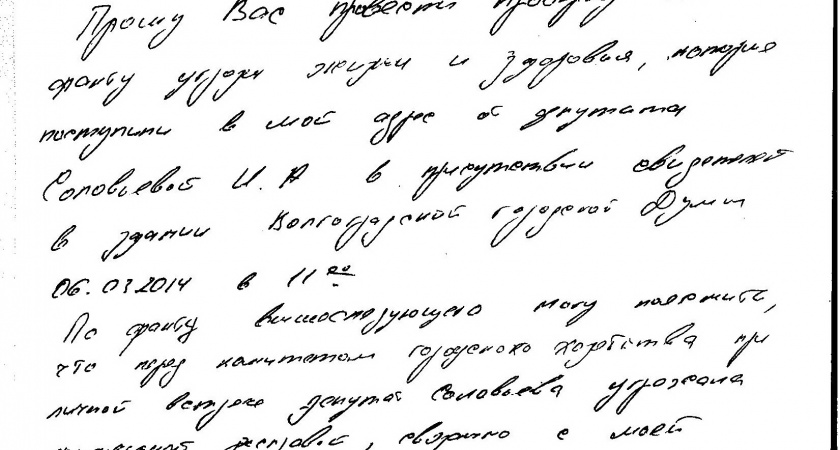 Прошу Вас провести проверку
факту угрозы жизни и здоровья, которые
поступили в мой адрес от депутата
Соловьевой И.А в присутствии свидетелей
в здании Волгоградской городской Думы
06.03.2014 в 11 00
По факту вышеследующего могу пояснить,
что перед комитетом городского хозяйства при
личной встрече депутат Соловьева угрожала
расправой, связано с моей